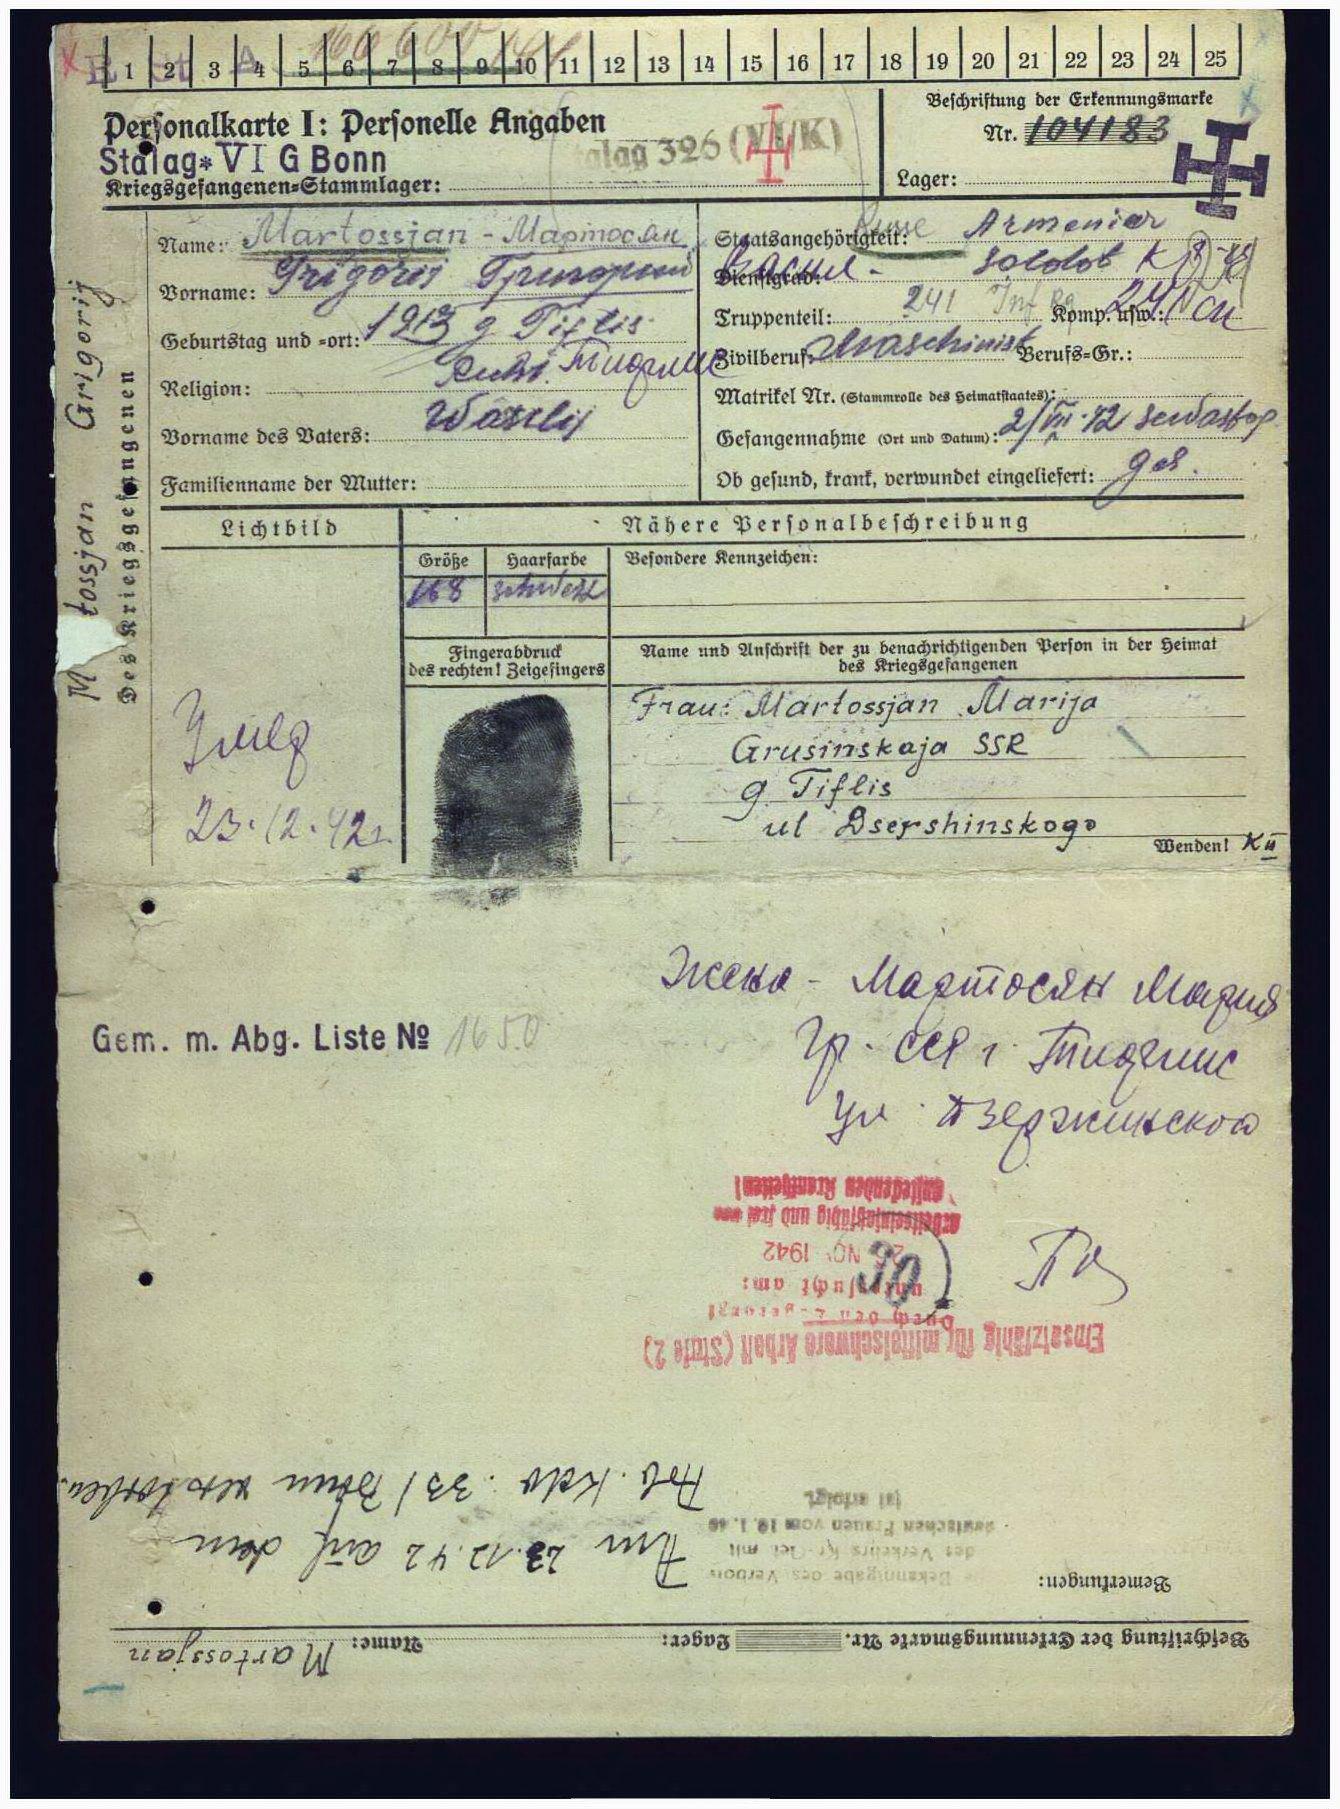 1 2 3 4 5 6 7 8 9 10 11 12 13 14 15 16 17 18 19 20 21 22 23 24 25
Personalkarte I: Personelle Angaben
Stalag VI G Bonn
Kriegsgefangenen-Stammlager:
talag 326 (VI/K)
Beschriftung der Erkennungsmarke
Nr. 104183
Lager:
Des Kriegsgefangenen
M tossjan Grigorij
Name: Martossjan - Мартосян
Vorname: Grigorij Григорий
Geburtstag und -ort: 1913 g Tiflis
Тифлис
Religion:
Vorname des Vaters: Wasilij
Familienname der Mutter:
Staatsangehörigkeit: Russe Armenier
Dienstgrad: Soldat
Truppenteil: 241 Inf Rg Komp. usw.:
Zivilberuf: Maschinist Berufs-Gr.:
Matrikel Nr. (Stammrolle des Heimatstaates):
Gefangennahme (Ort und Datum): 2/VII.42 Sewastop
Ob gesund, krank, verwundet eingeliefert: ges.
Lichtbild
Nähere Personalbeschreibung
Größe Haarfarbe Besondere Kennzeichen:
168 schwarz
Fingerabdruck
des rechten! Zeigefingers
Name und Anschrift der zu benachrichtigenden Person in der Heimat
des Kriegsgefangenen
Frau: Martossjan Marija
Grusinskaja SSR
g. Tiflis
ul Dsershinskogo
Wenden!
Умер
23.12.42г.
Жена - Мартосян Мария
Гр. ССР г. Тифлис
ул. Дзержинского
Gem. m. Abg. Liste № 1650
Einsatzfähig für mittelschwere Arbeit (Stufe 2)
Durch den Lagerarzt
untersucht am:
NOV 1942
arbeitseinsatzfähig und frei von
ansteckenden Krankheiten!
30
Beschriftung der Erkennungsmarke Nr. Lager: Name: Martossjan
Bemerkungen:
Bekanntgabe des Verbots
des Verkehrs Kr.-Gef. mit
deutschen Frauen vom 10.1.40
ist erfolgt
Am 23.12.42 auf dem
Arb. Kdo. 331 Bonn verstorben.